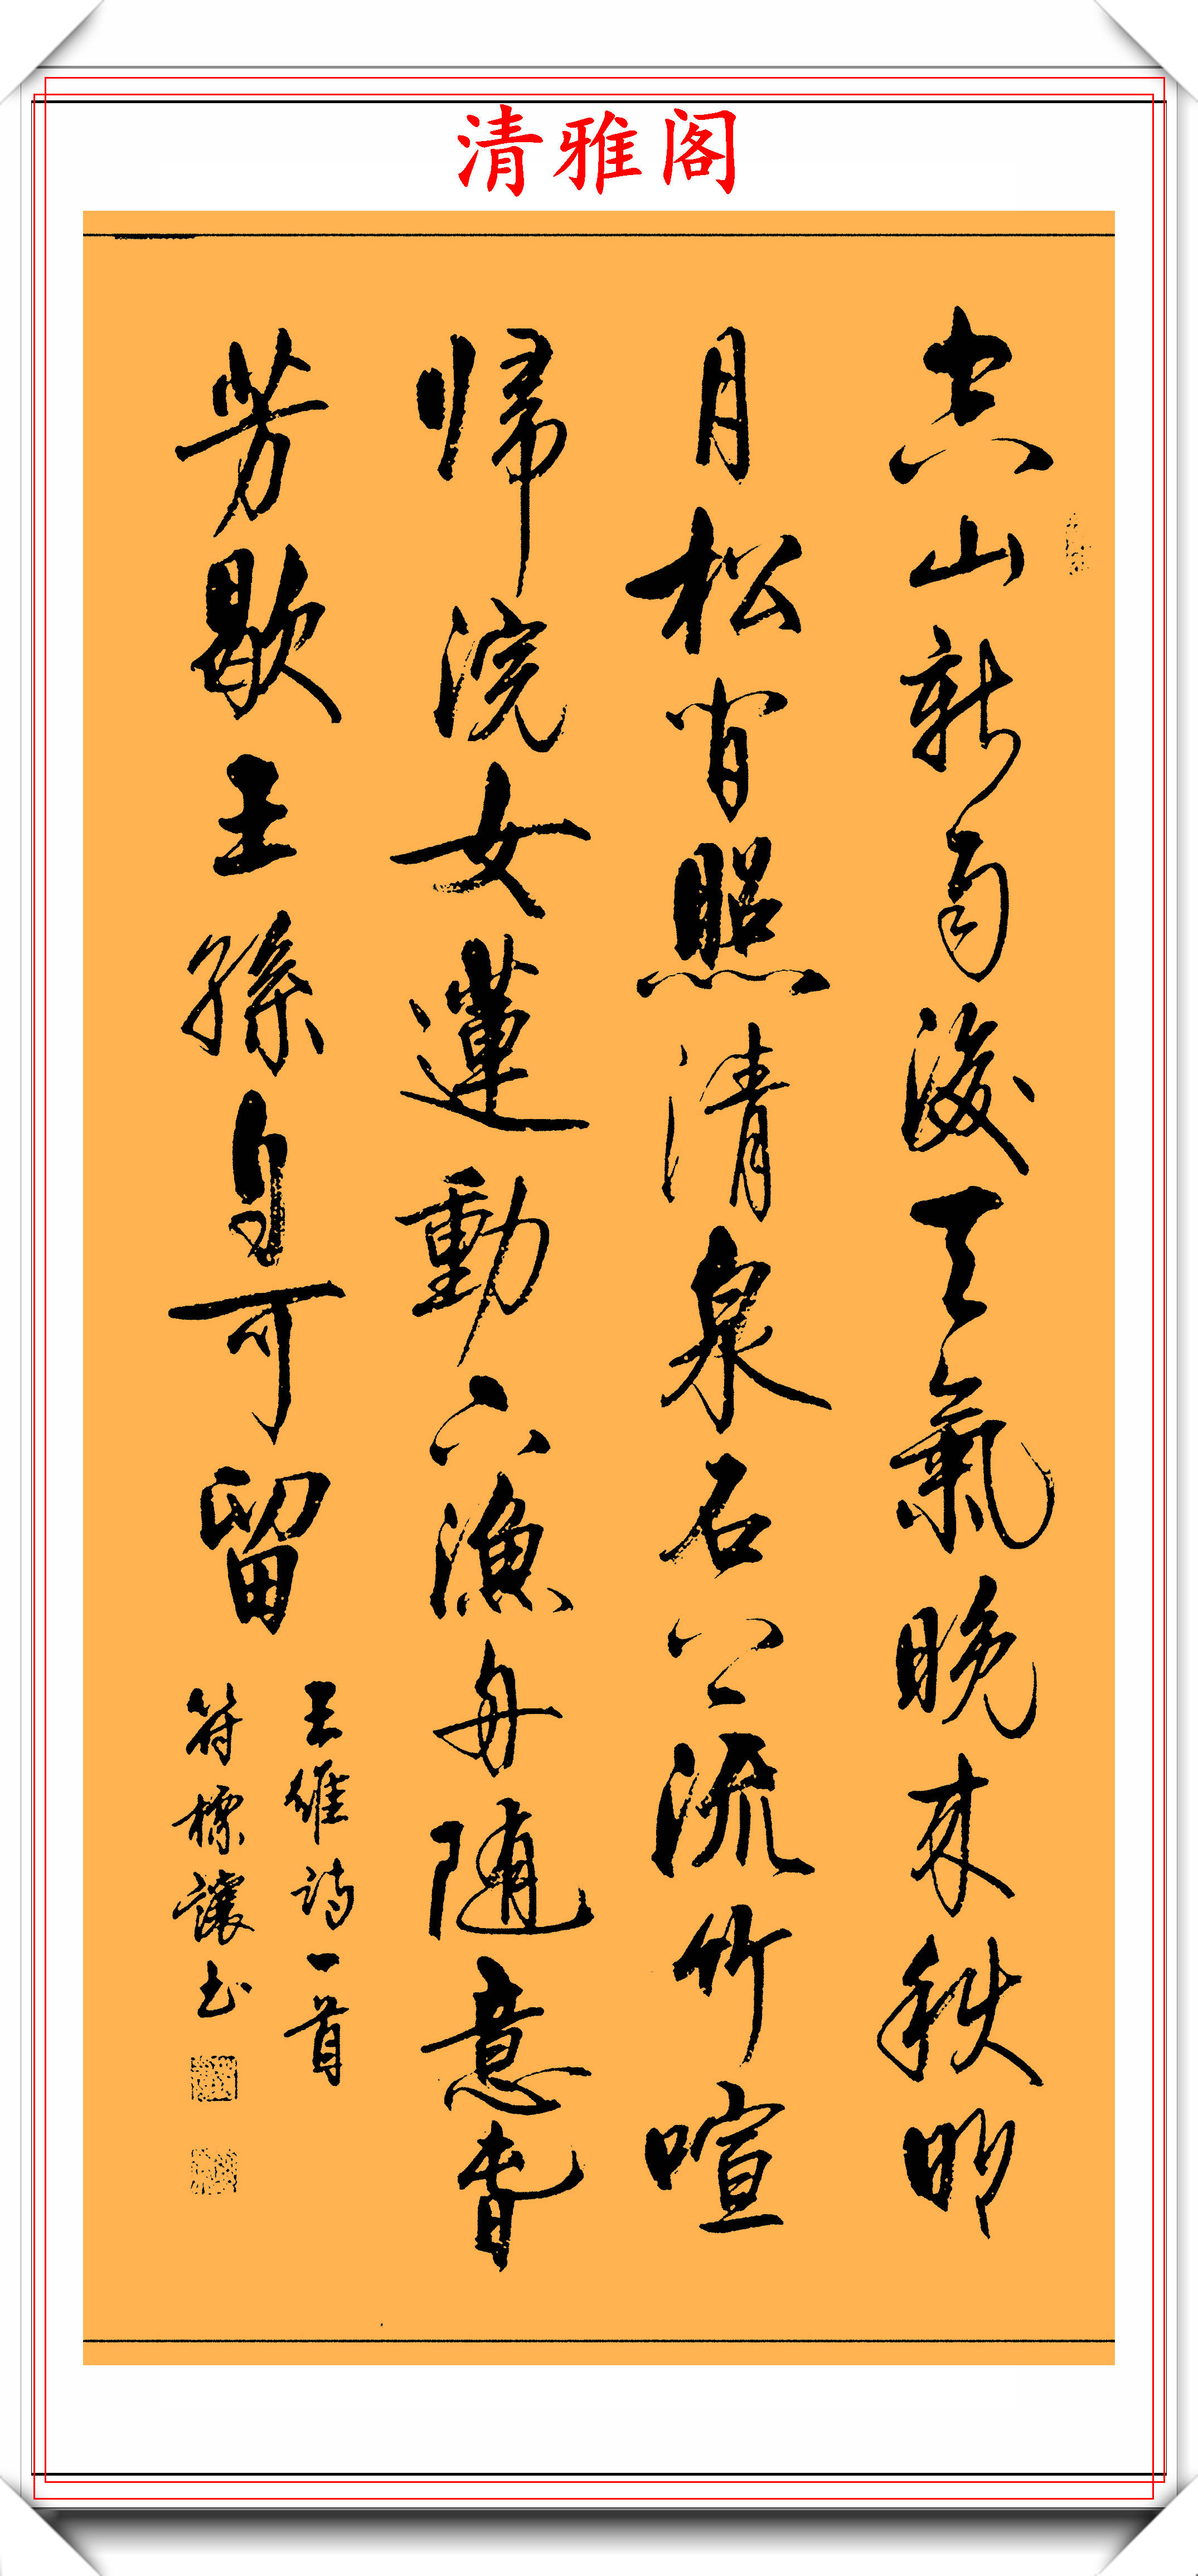 清雅阁
空山新雨後天氣晚来秋明
月松間照清泉石上流竹喧
帰浣女蓮動下漁舟随意春
芳歇王孫自可留
王維詩一首
符標讓书